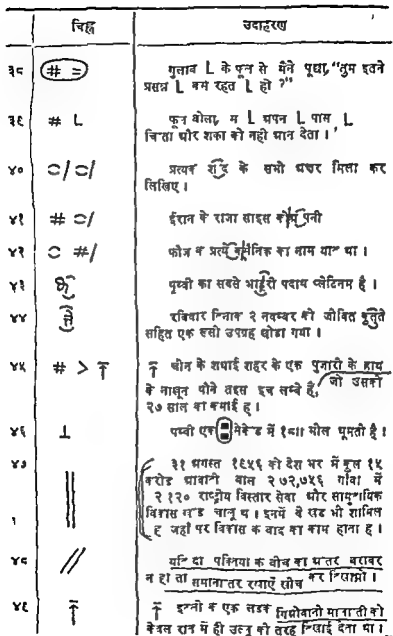 चिह्न उदाहरण
३८ # = गुलाब L के फूल से मैंने पूछा, "तुम इतने
प्रसन्न L कसे रहत L हो ?"
३९ # L फूल बोला, म L अपन L पास L
चिन्ता और शका को नही आन देता ।'
४० प्रत्यक शब्द के सभी अक्षर मिला कर
लिखिए ।
४१ # ईरान के राजा साइस की पनी
४२ # फौज क प्रत्ये सैनिक का नाम याद था ।
४३ पृथ्वी का सबसे भारी पदाथ प्लेटिनम है ।
४४ रविवार दिनाक २ नवम्बर को जीवित कुत्ते
सहित एक रूसी उपग्रह छोडा गया ।
४५ # > चीन के शघाई शहर के एक पुजारी के हाथ
के नाखून पौने तेइस इच लम्बे हैं, जो उसकी
२७ साल का कमाई ह ।
४६ ⊥ पथ्वी एक सेकेंड में १८॥ मील घूमती है ।
४७ || ३१ अगस्त १९५६ को देश भर में कुल १५
करोड आबादी वाल २७२,७५६ गाँवा में
२१२० राष्ट्रीय विस्तार सेवा और सामुदायिक
विकास खंड चालू थ । इनमें वे खड भी शामिल
ह जहाँ पर विकास क बाद का काम होना ह ।
४८ // यदि दा पक्तिया क बीच का अतर बराबर
न हा ता समानातर रेखाएँ खीच कर दिखाओ ।
४९ इटली क एक लडक गियोवानी मागाती को
केवल रात में ही उल्लू की तरह दिखाई देता था ।